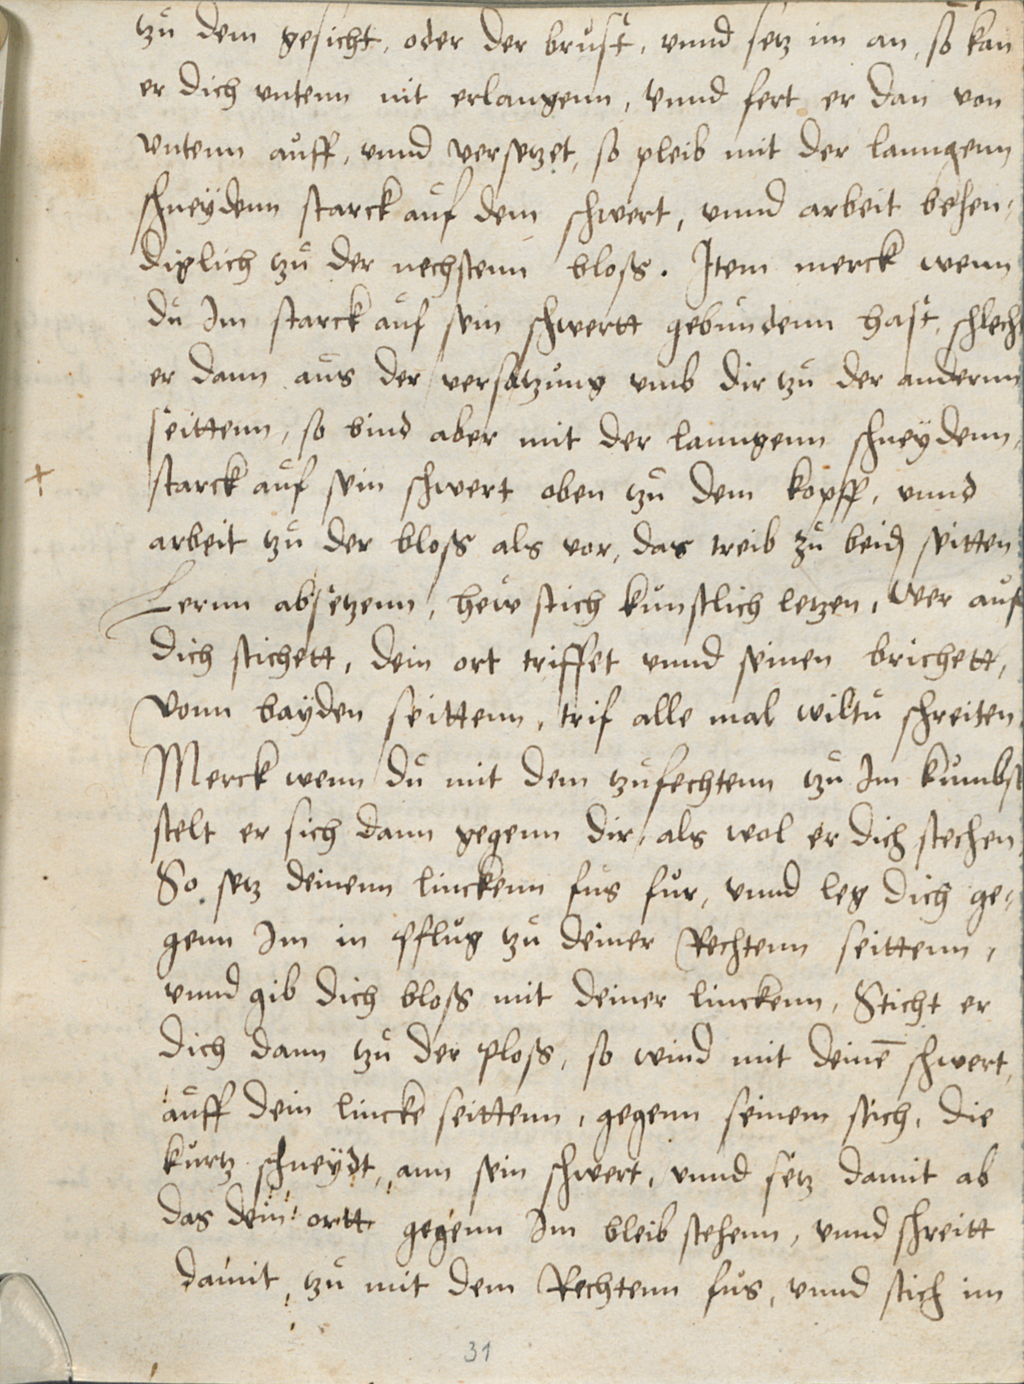 tzů dem gesicht, oder der brůst, vnnd setz im an, so kan
er dich vntenn nit erlangenn, Vnnd fert er dan von
vntenn aůff, vnnd versetzet, so pleib mit der lanngenn
schneydenn starck aůf dem schwert, vnnd arbeit behen,
diglich tzů der nechstenn bloss. Item merck wenn
dů Im starck aůf sein schwertt gebůndenn hast, schlecht
er dann aůs der versatzůng vmb dir tzů der andernn
seittenn, so bind aber mit der lanngenn schneydenn,
starck aůf sein schwert oben tzů dem kopff, vnnd
arbeit tzů der bloss als vor, das treib zů beid seitten
Lernn absetzenn, hew stich kůnstlich letzen, Wer aůf
dich stichett, dein ort triffet vnnd seinen brichett,
Vonn bayden seittenn, trif alle mal wiltů schreiten
Merck wenn dů mit dem tzůfechtenn tzů Im kůmbst
stelt er sich dann gegenn dir, als wol er dich stechen
So setz deinenn linckenn fůs fůr, vnnd leg dich ge,
genn Im in pflůg tzů deiner Rechtenn seittenn,
vnnd gib dich bloss mit deiner linckenn, Sticht er
dich dann tzů der ploss, so wind mit deinē schwert,
aůff dein lincke seittenn, gegenn seinem stich, die
kůrtz schneydt, ann sein schwert, vnnd setz damit ab
das dein ortt gegenn Im bleib stehenn, vnnd schreitt
damit, tzů mit dem Rechtenn fůs, vnnd stich im
31